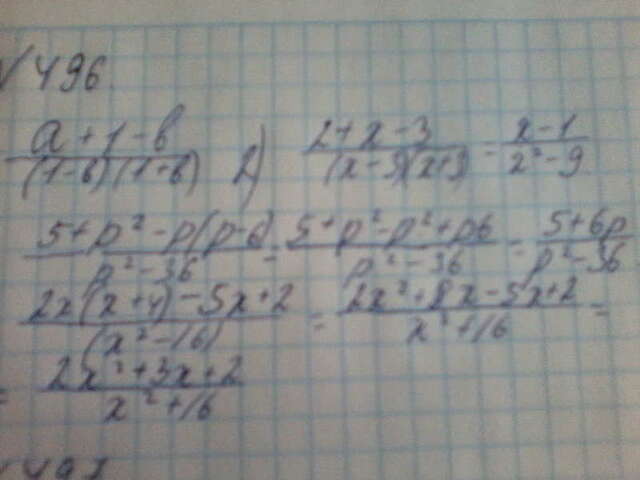 № 496.
(a+1-b)/((1-b)(1-b)) 2) (2+x-3)/((x-3)(x+3)) = (x-1)/(x²-9)
(5+p²-p(p-6))/(p²-36) = (5+p²-p²+p6)/(p²-36) = (5+6p)/(p²-36)
(2x(x+4)-5x+2)/((x²-16)) = (2x²+8x-5x+2)/(x²+16) =
= (2x²+3x+2)/(x²+16)